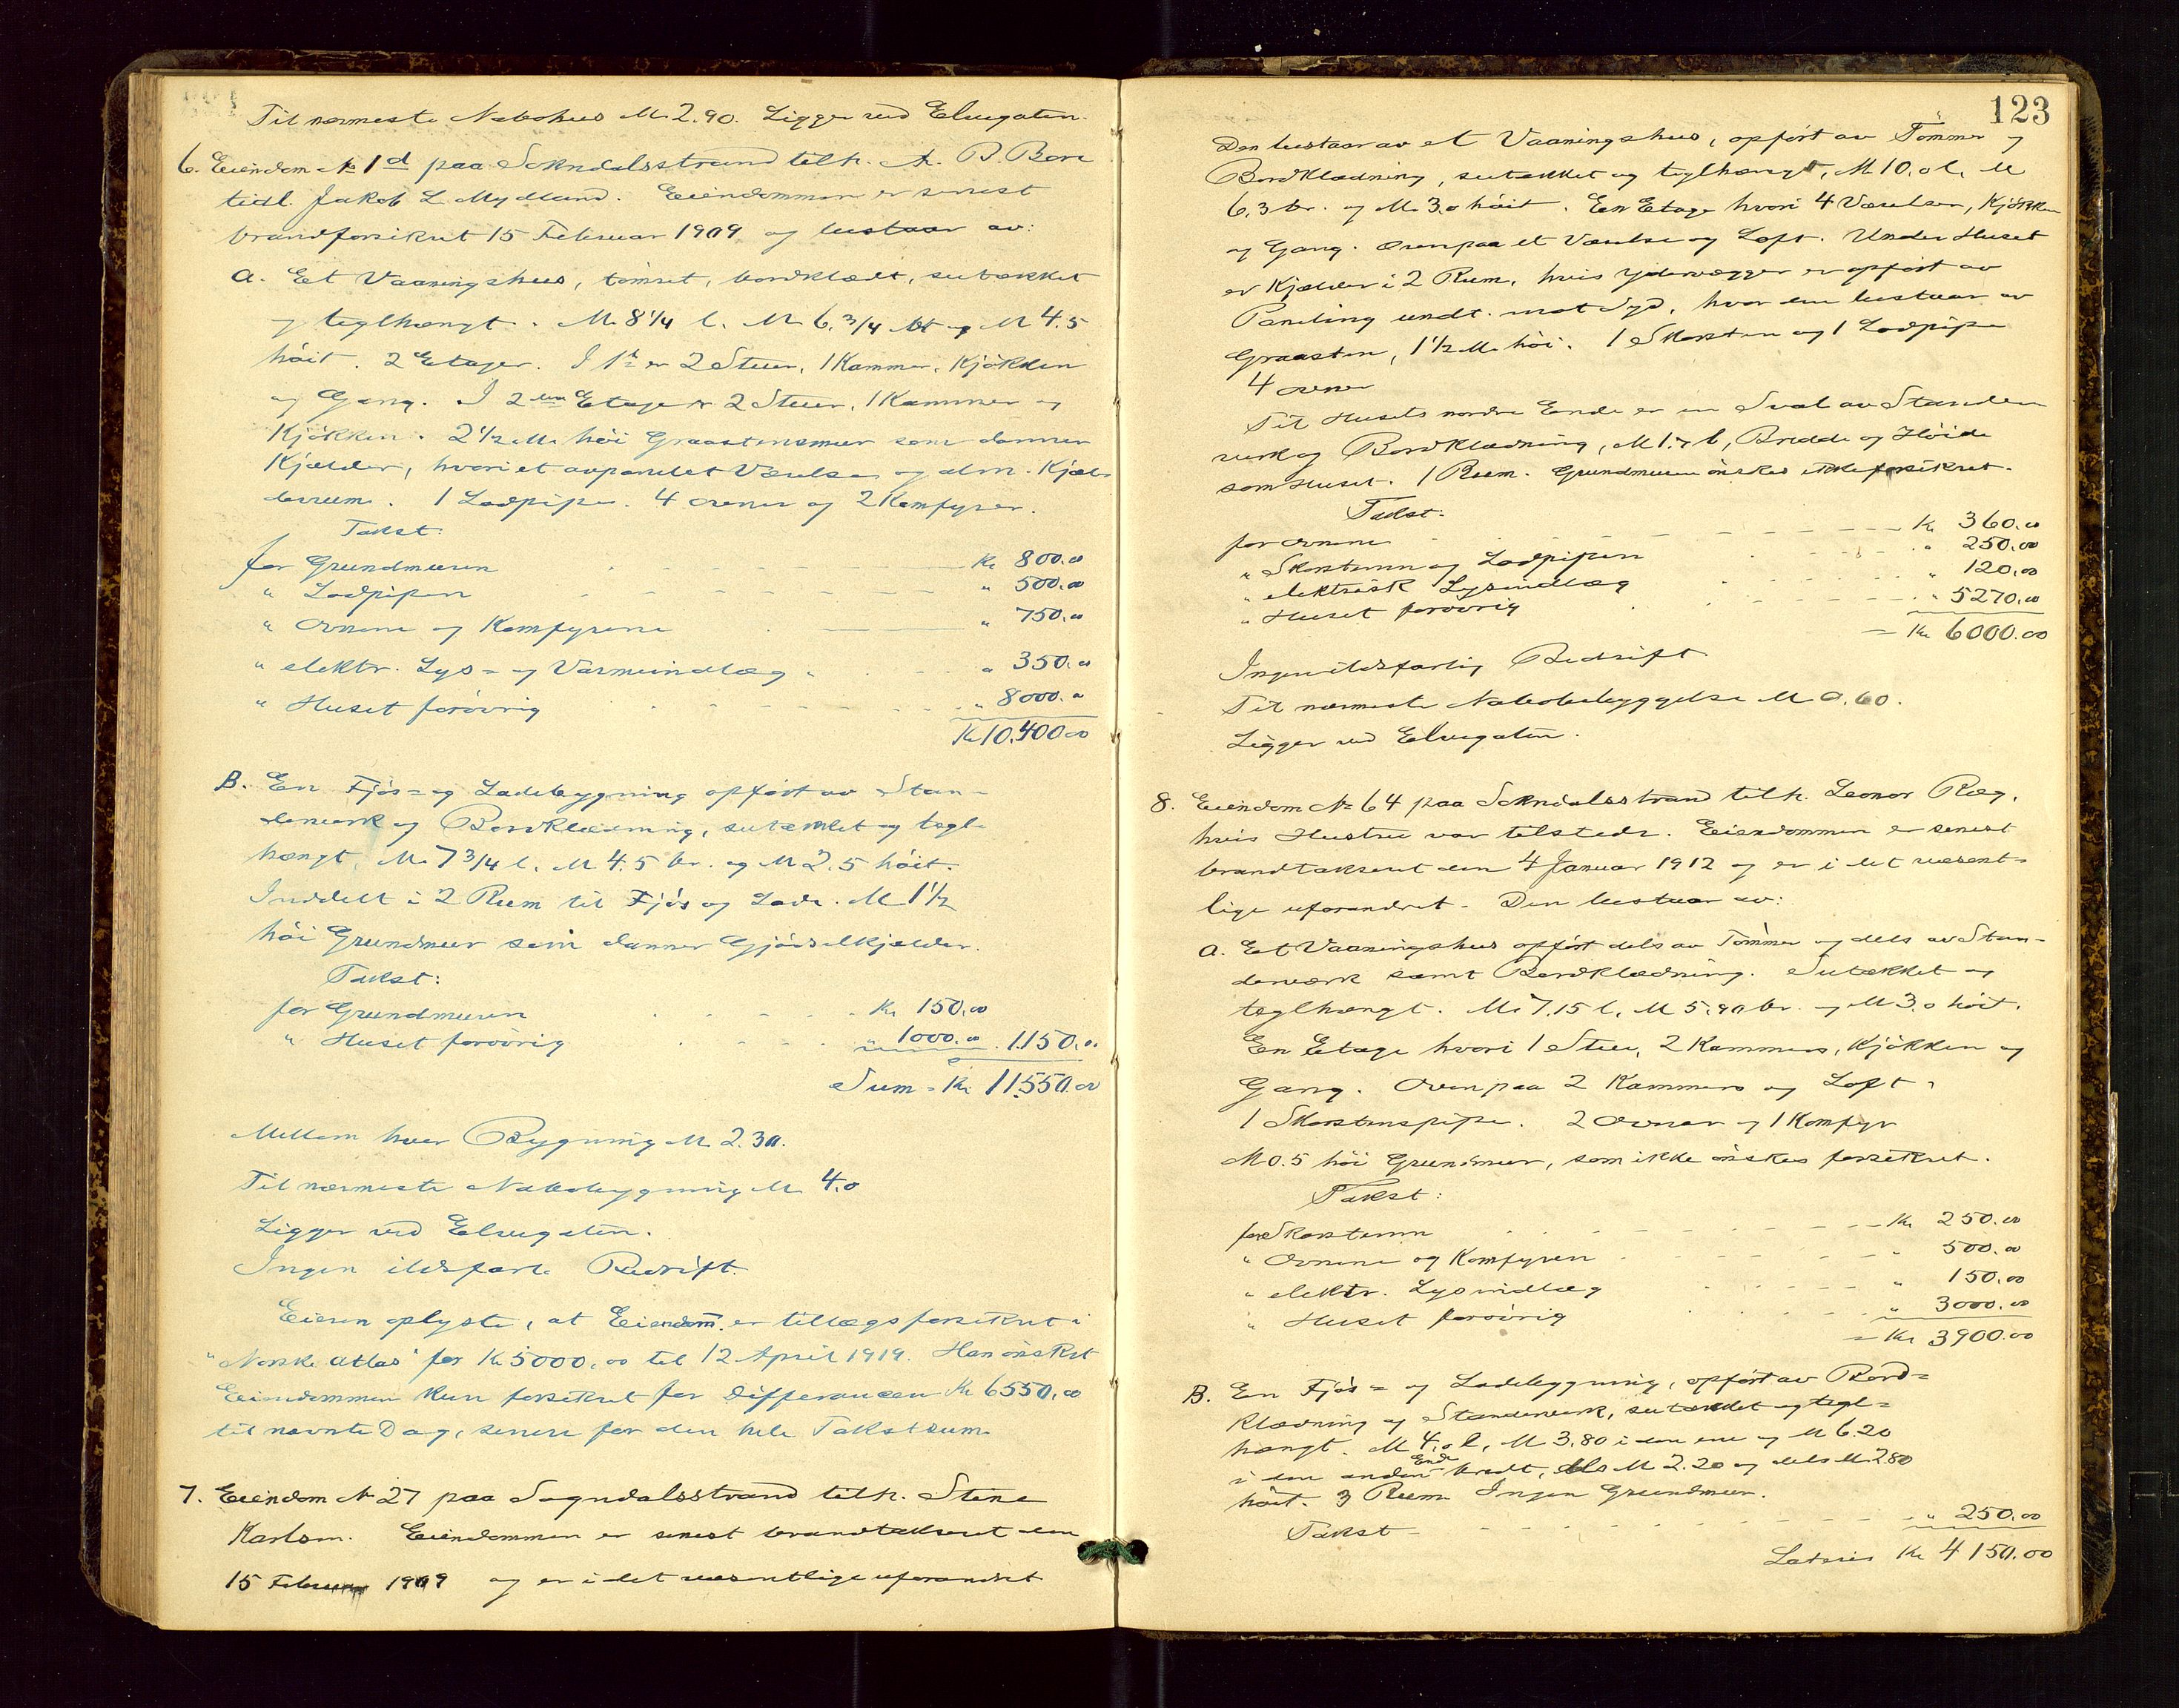 Til nærmeste Nabohus M. 2.90. Ligger ved Elvegaten.
6. Eiendom № 1d paa Sokndalsstrand tilh. A. B. Bore
tidl. Jakob L. Mydland. Eiendommen er senest
brandforsikret 15 Februar 1909 og bestaar av:
a. Et Vaaningshus, tømret, bordklædt, sutækket
og teglhængt. M. 8 1/4 l. M 6. 3/4 br og M 4.5
høit. 2 Etager. I 1ste er 2 Stuer, 1 Kammer, Kjøkken
og Gang. I 2den Etage er 2 Stuer, 1 Kammer og
Kjøkken. 2 1/2 M. høi Graastensmur som danner
Kjælder, hvori et avpanelet Værelse og alm. Kjæl-
derrum. 1 Ladpipe. 4 Ovner og 2 Komfyrer.
Takst:
for Grundmuren Kr 800.00
" Ladpipen " 500.00
" Ovnene og Komfyrene " 750.00
" elektr. Lys- og Varmeindlæg " 350.00
" Huset forøvrig " 8000.00
Kr 10.400.00
B. En Fjøs- og Ladebygning opført av Stan-
derverk og Bordklædning, sutækket og tegl-
hængt, M. 7 3/4 l. M. 4.5 br. og M 2.5 høit.
Inddelt i 2 Rum til Fjøs og Lade. M 1 1/2
høi Grundmur som danner Gjødselkjælder.
Takst:
for Grundmuren Kr 150.00
" Huset forøvrig " 1000.00 1.150.00
Sum = Kr 11.550.00
Mellem hver Bygning M 2.30.
Til nærmeste Nabobygning M 4.0
Ligger ved Elvegaten.
Ingen ildsfarl. Bedrift.
Eieren oplyste, at Eiendom. er tillægsforsikret i
"Norske Atlas" for Kr 5000.00 til 12 April 1919. Han ønsket
Eiendommen kun forsikret for Differancen Kr 6550.00
til nævnte Dag, senere for den hele Takstsum.
7. Eiendom № 27 paa Sogndalsstrand tilh. Stine
Karlsen. Eiendommen er senest brandtakseret den
15 Februar 1909 og er i det væsentlige uforandret
123
Den bestaar av et Vaaningshus, opført av Tømmer og
Bordklædning, sutækket og teglhængt, M 10.0 l. M
6,3 br. og M. 3.0 høit. En Etage hvori 4 Værelser, Kjøkken
og Gang. Ovenpaa et Værelse og Loft. Under Huset
er Kjælder i 2 Rum, hvis Ydervægger er opført av
Paneling undt. mot Syd, hvor den bestaar av
Graasten, 1 1/2 M. høi. 1 Skorsten og 1 Ladpipe
4 Ovner
Til Husets nordre Ende er en Sval av Stander-
verk og Bordklædning, M 1.7 l, Bredde og Høide
som Huset. 1 Rum. Grundmuren ønskes ikke forsikret.
Takst:
for Ovnene Kr 360.00
" Skorstenen og Ladpipen " 250.00
" elektrisk Lysindlæg " 120.00
" Huset forøvrig " 5270.00
= Kr 6000.00
Ingen ildsfarlig Bedrift.
Til nærmeste Nabobebyggelse M 0.60.
Ligger ved Elvegaten.
8. Eiendom № 64 paa Sokndalsstrand tilh. Leonor Ræg,
hvis Hustru var tilstede. Eiendommen er senest
brandtakseret den 4 Januar 1912 og er i det væsent-
lige uforandret. Den bestaar av:
a. Et Vaaningshus opført dels av Tømmer og dels av Stan-
derverk samt Bordklædning. Sutækket og
teglhængt. M. 7.15 l, M 5.90 br. og M 3.0 høit.
En Etage hvori 1 Stue, 2 Kammers, Kjøkken og
Gang. Ovenpaa 2 Kammers og Loft.
1 Skorstenspipe. 2 Ovner og 1 Komfyr
M 0.5 høi Grundmur, som ikke ønskes forsikret.
Takst:
for Skorstenen Kr 250.00
" Ovnene og Komfyren " 500.00
" elektr. Lysindlæg " 150.00
" Huset forøvrig " 3000.00
= Kr 3900.00
B. En Fjøs- og Ladebygning, opført av Bord-
klædning og Standerverk, sutækket og tegl-
hængt. M 4.0 l, M 3.80 i den ene og M 6.20
i den anden Ende bredt, dels M 2.20 og dels M 2.80
høit. 3 Rum Ingen Grundmur.
Takst " 250.00
Lateris Kr 4150.00